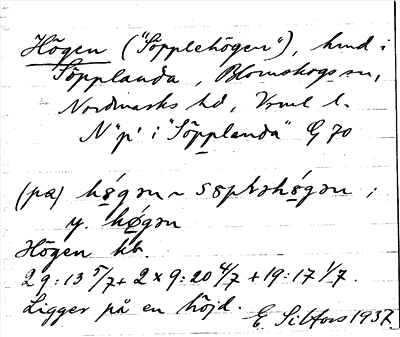 Högen ("Söpplehögen"), hmd i
Söpplanda, Blomskogs sn,
Nordmarks hd, Vrml l.
N"p" i "Söpplanda" G 70
(pa) hǫ́gən ~
y. hǿgən
Högen kb.
29:13 5/7 + 2 x 9:20 4/7 + 19:17 1/7.
Ligger på en höjd.
E. Sillfors 1937